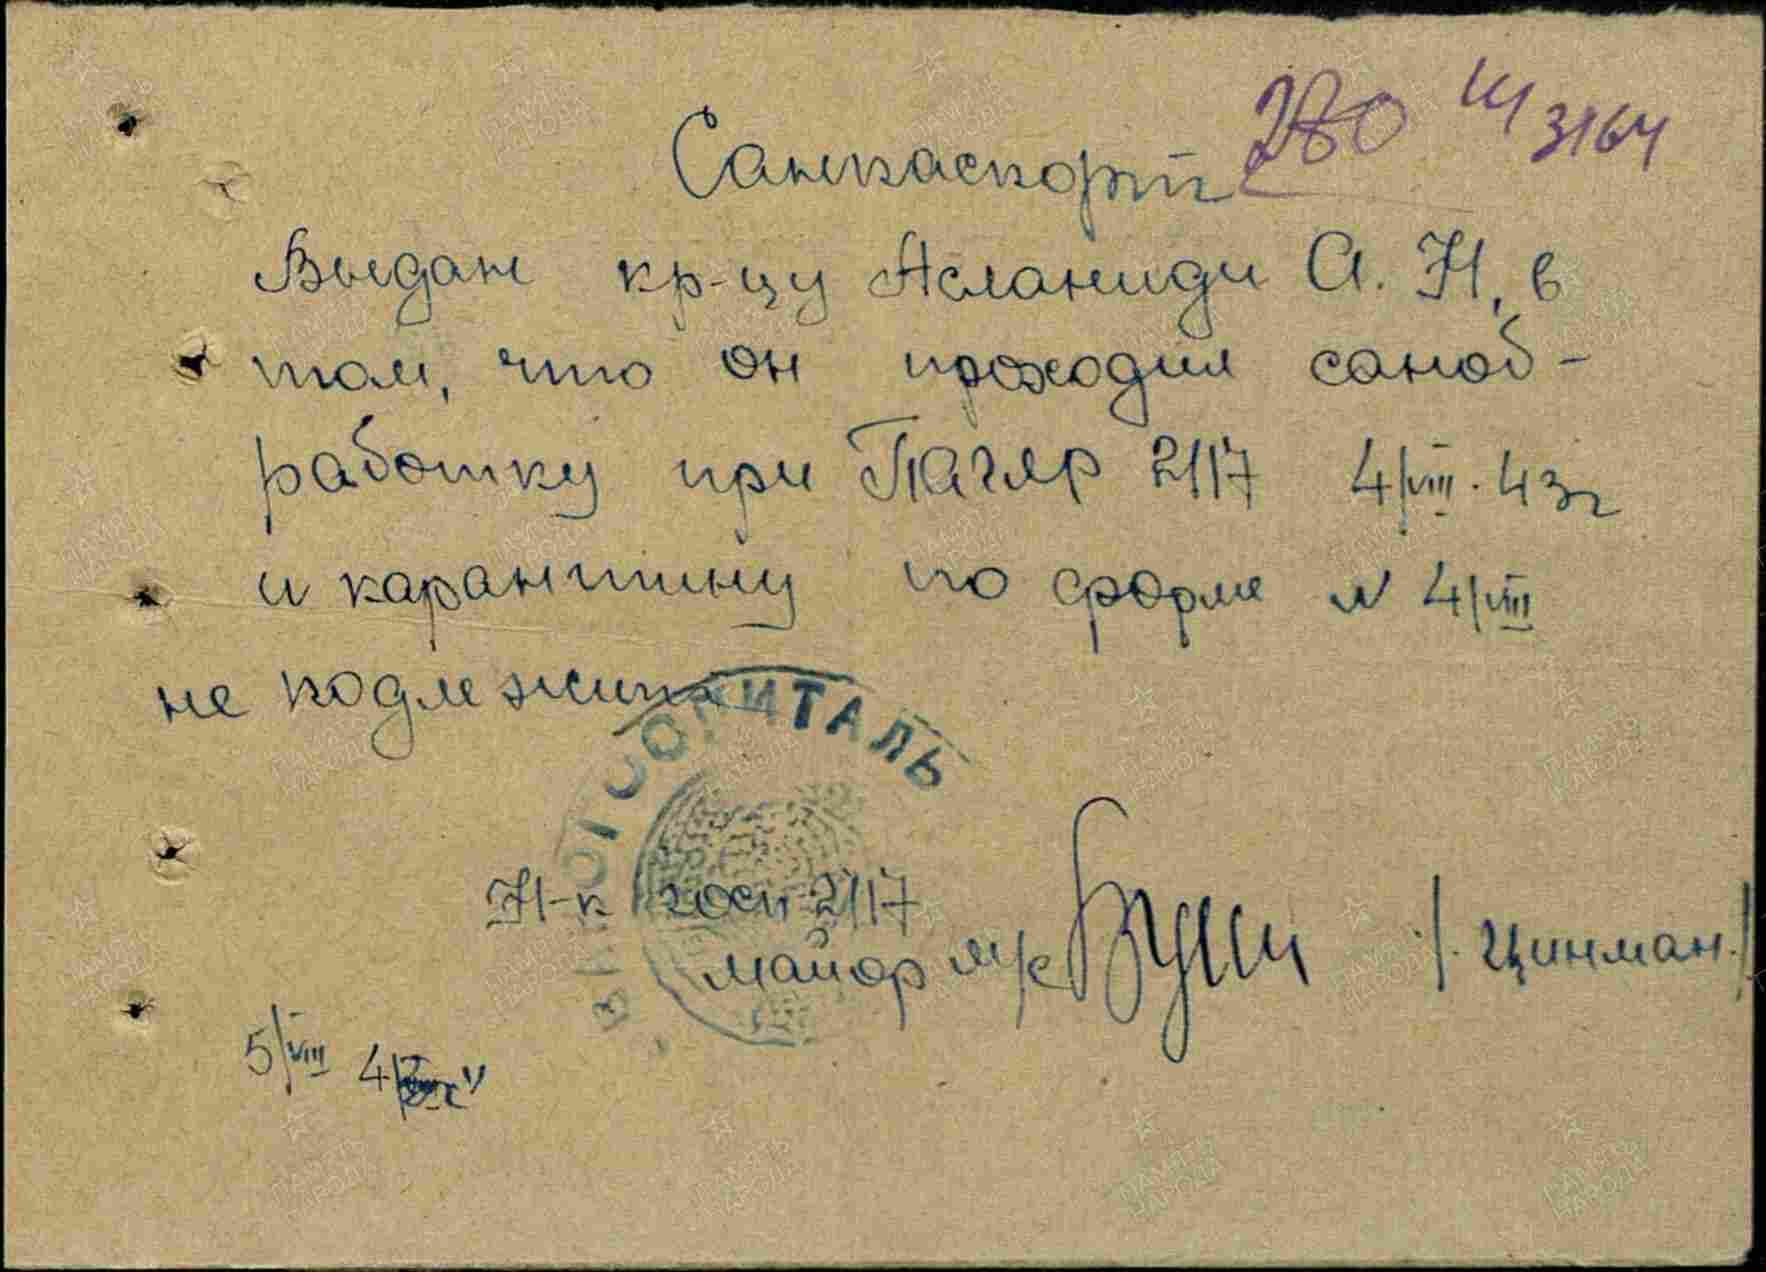 280 Ш 3164
Санпаспорт
Выдан кр-цу Асланиди А. Н, в
том, что он проходил саноб-
работку при ПАГЛР 2117 4/VIII. 43г
и карантину по форме N 4/VIII
не подлежит
ГОСПИТАЛЬ
Н-к госп 2117
майор м/с /. Цинман. /
5/VIII 4